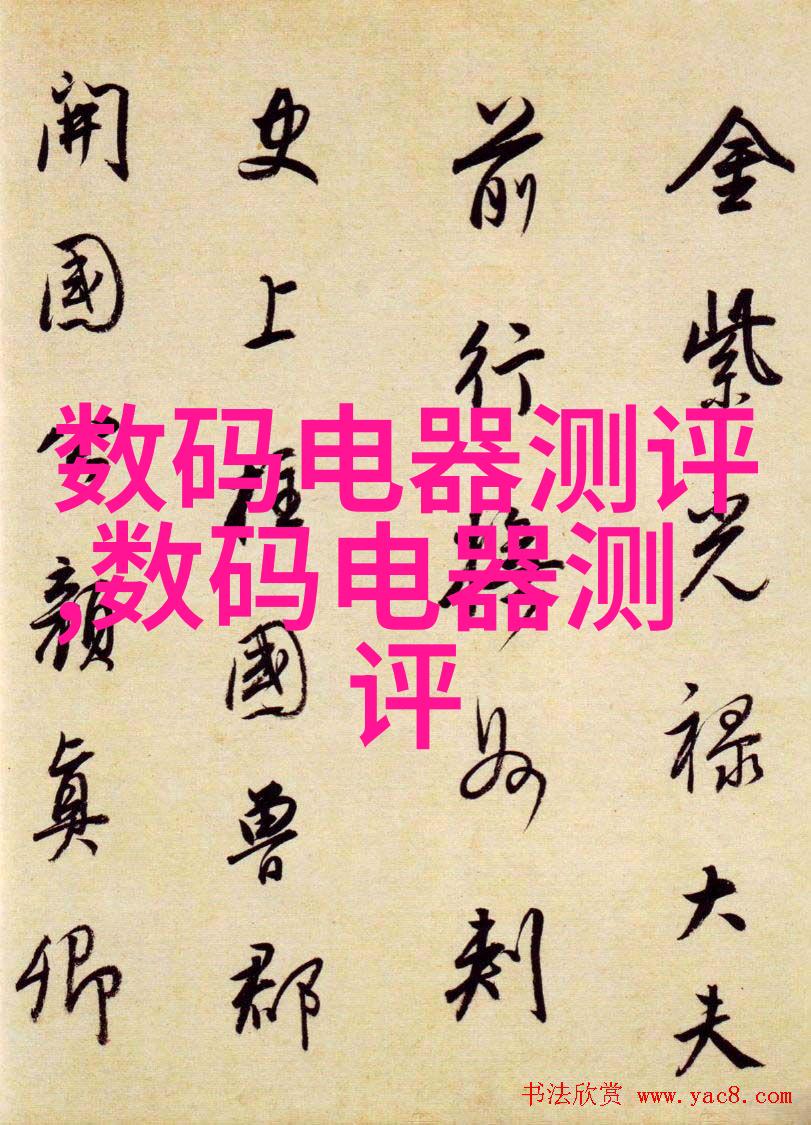 金紫光禄大夫
前行撫州刺
史上柱國魯郡
開國公顏真卿
数码电器测评
,数码电器测
评
书法欣赏 www.yac8.com